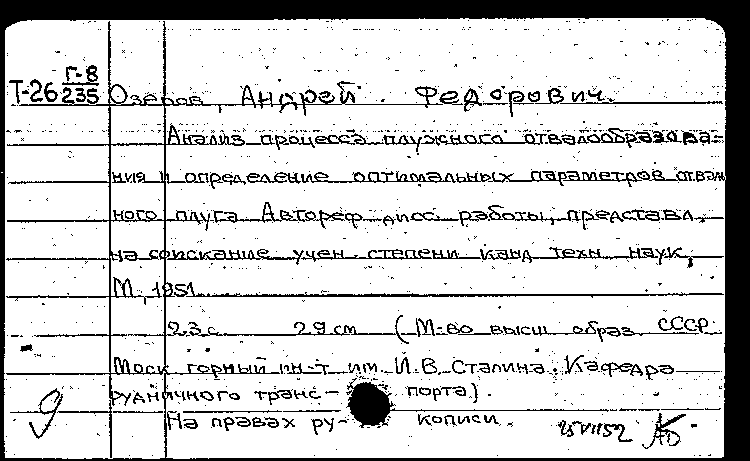 Г-8
Т-26 235 Озеров, Андрей Федорович.
Анализ процесса плужного отвалообразова-
ния и определение оптимальных параметров отваль
ного плуга Автореф дисс работы, представл.
на соискание учен. степени канд техн. наук,
М, 1951
23 с. 29 см (М-во высш образ СССР
Моск горный ин-т им. И.В. Сталина. Кафедра
рудничного транс- порта).
На правах ру- кописи.
9